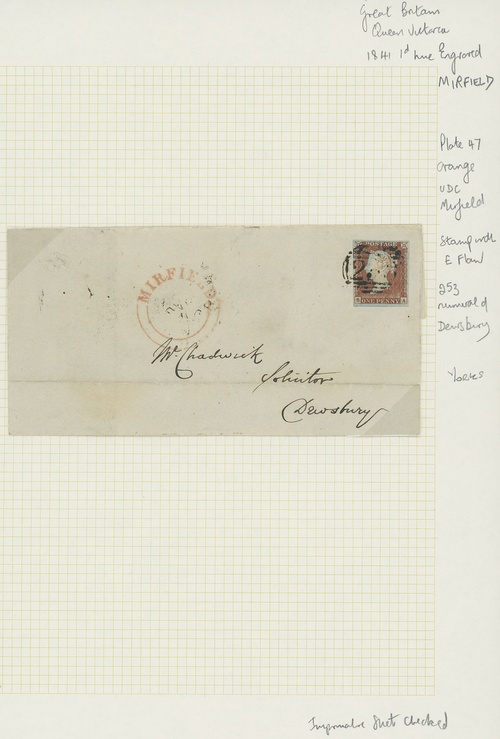 Great Britain
Queen Victoria
1841 1d line Engraved
MIRFIELD
Plate 47
Orange
UDC
Mirfield
Stamp with
E Flaw
253
numeral of
Dewsbury
Yorks
POSTAGE
ONE PENNY
MIRFIELD
Mr Chadwick
Solicitor
Dewsbury
Sheet Checked